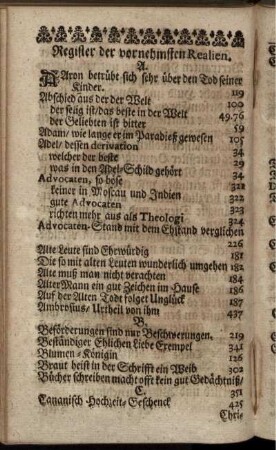 Register der vornehmsten Realien.
A.
AAron betrübt sich sehr über den Tod seiner
Kinder. 119
Abschied aus der der Welt 100
der seüg ist/das beste in der Welt 49.76
der Geliebten ist bitter 59
Adam/ wie lange er im Paradieß gewesen 105
Adel/ dessen derivation 34
welcher der beste 29
was in den Adel-Schild gehört 34
Advocaten, so böse 321
keiner in Moscau und Indien 322
gute Advocaten 323
richten mehr aus als Theologi 324
Advocaten-Stand mit dem Ehstand verglichen
226
Alte Leute sind Ehrwürdig 181
Die so mit alten Leuten wunderlich umgehen 182
Alte muß man nicht verachten 184
Alter Mann ein gut Zeichen im Hause 186
Auf der Alten Todt folget Unglück 187
Ambrosius/ Urtheil von ihm 437
B.
Beförderungen sind nur Beschwerungen. 219
Beständiger Ehlichen Liebe Exempel 421
Blumen-Königin 126
Braut heist in der Schrifft ein Weib 302
Bücher schreiben macht offt kein gut Gedächtniß/
351
C.
Cananisch-Hochzeit-Geschenck 425
Chri-